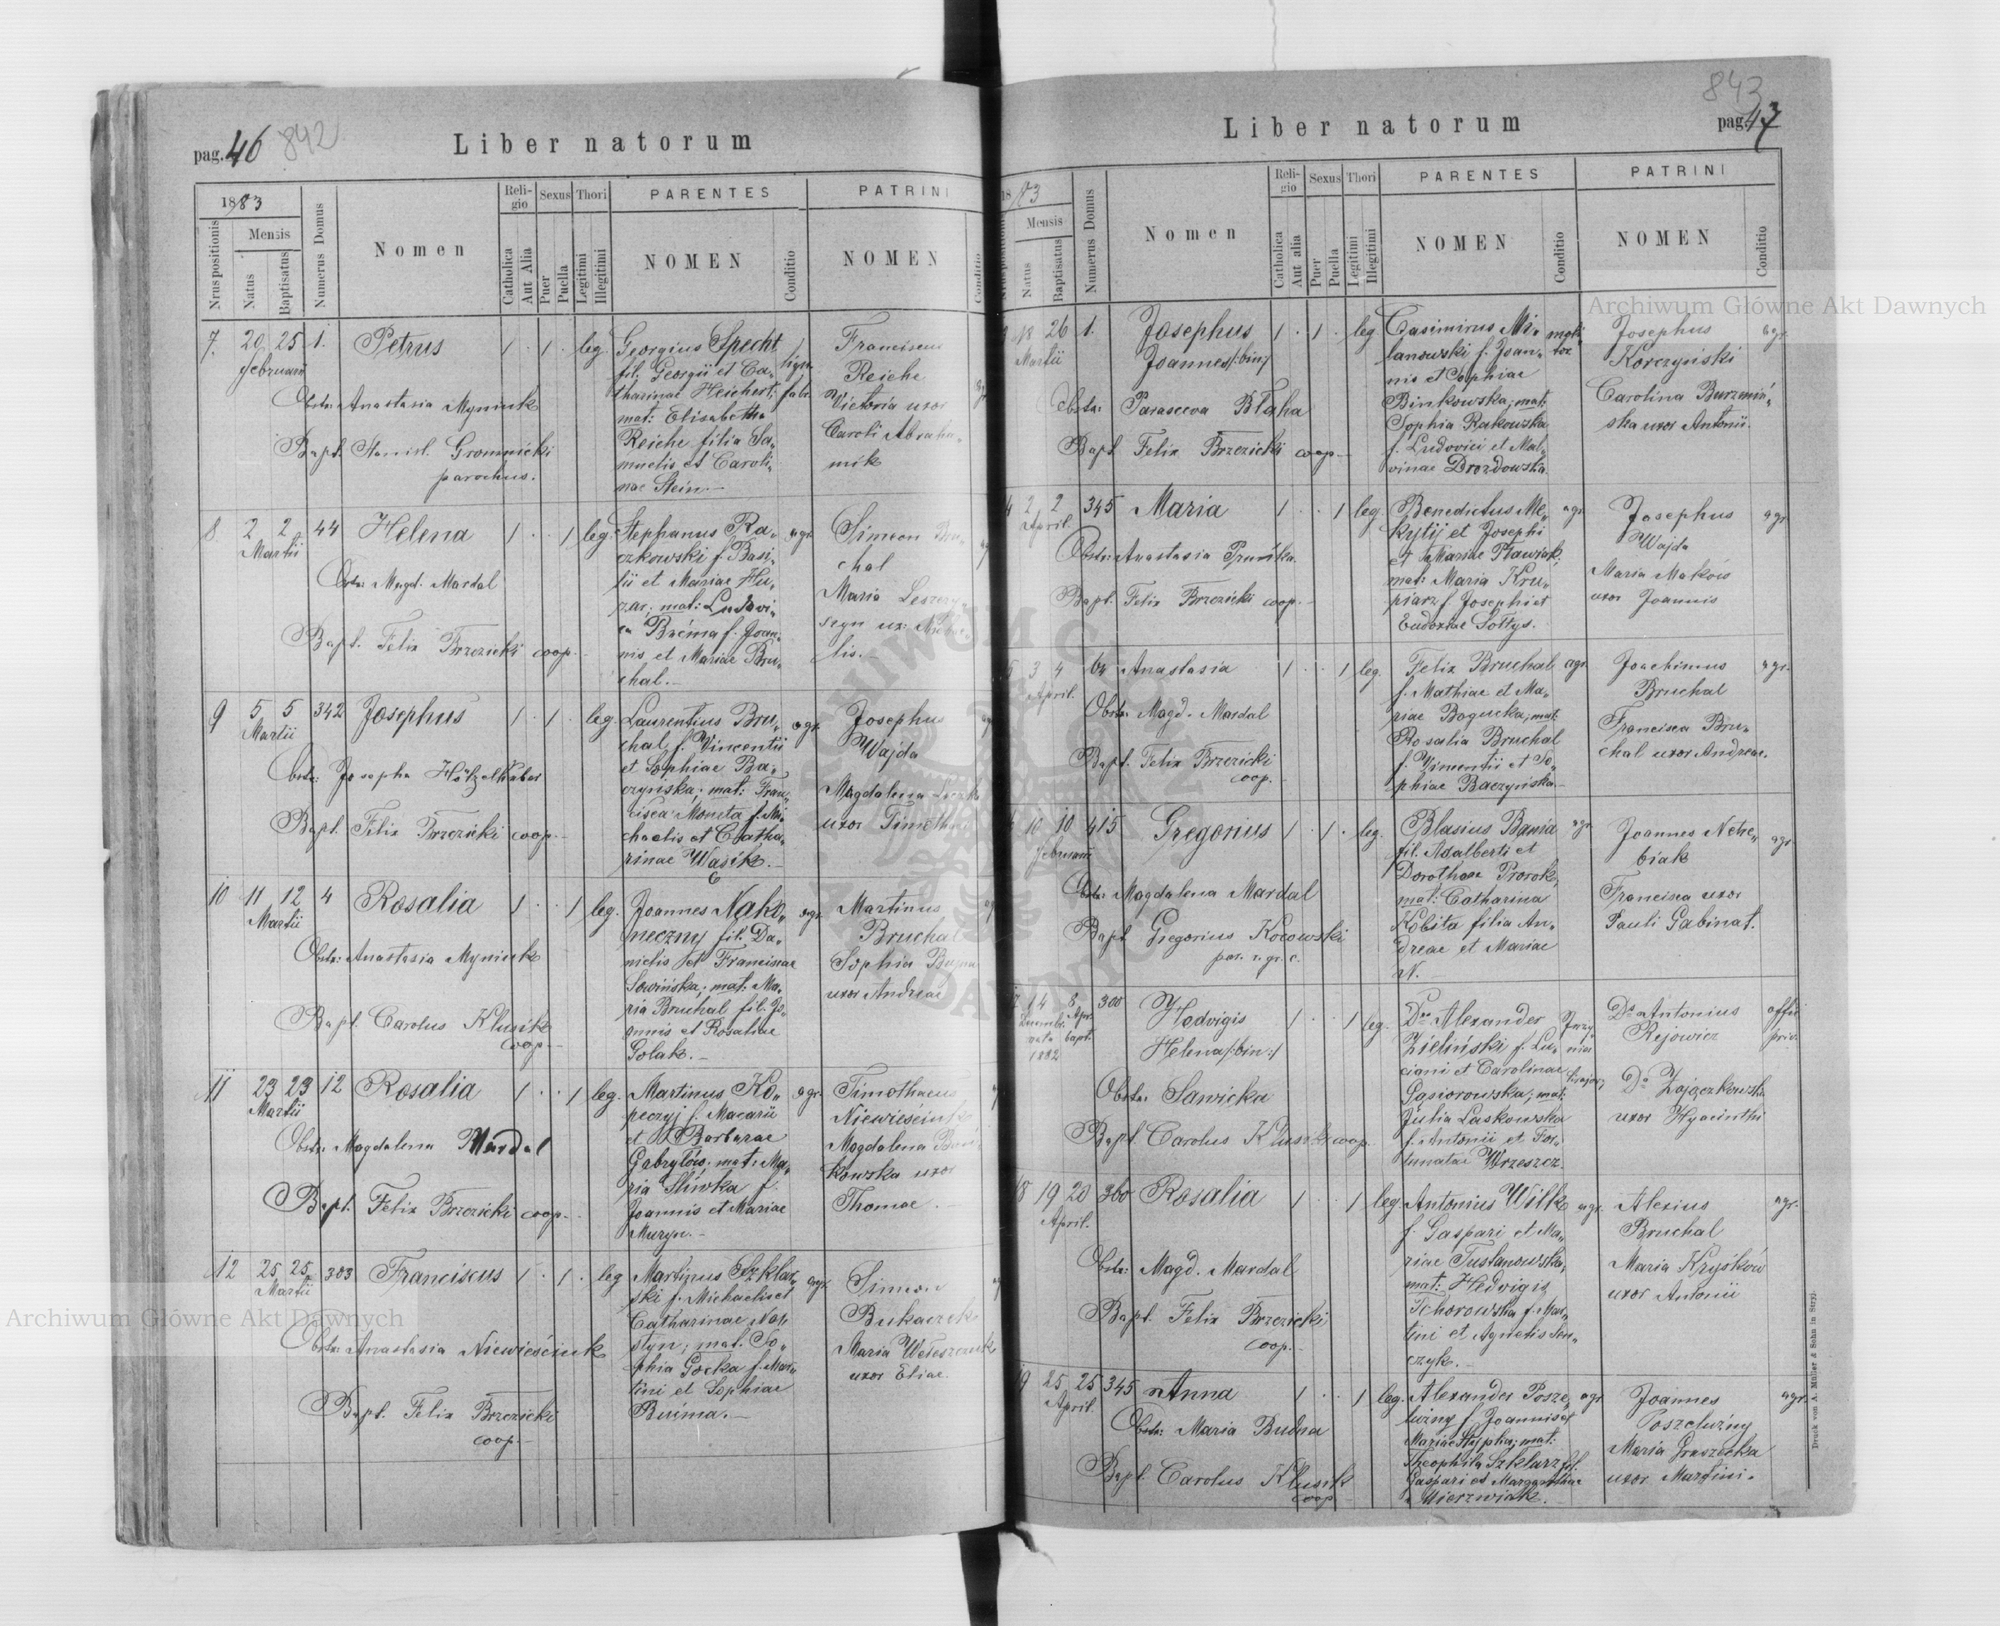 pag. 46 842
Liber natorum
1883
Nrus positionis
Mensis
Natus
Baptisatus
Numerus Domus
Nomen
Religio
Catholica
Aut Alia
Sexus
Puer
Puella
Thori
Legitimi
Illegitimi
PARENTES
NOMEN
Conditio
PATRINI
NOMEN
Conditio
7. 20 25 1. Petrus 1 . 1 . leg.
februarii
Obstx: Anastasia Myniuk
Bapt. Stanisl. Gromnicki
parochus.
Georgius Specht
fil. Georgii et Ca-
tharinae Heichert;
mat: Elisabetha
Reiche filia Sa-
muelis et Caroli-
nae Stein.
Franciscus
Reiche
Victoria uxor
Caroli Abraha-
mik
8. 2 2 44 Helena 1 . . 1 leg.
Martii
Obstx: Magd. Mardal
Bapt. Felix Brzezicki coop.
Stephanus Ra- agr.
czkowski f. Basi-
lii et Mariae Hu-
zar; mat: Ludovi-
ca Bućma f. Joan-
nis et Mariae Bru-
chal.
Simeon Bru-
chal
Maria
lis.
9 5 5 342 Josephus 1 . 1 . leg.
Martii
Obstx: Josepha Hötzelhuber
Bapt. Felix Brzezicki coop.
Laurentius Bru- agr.
chal, f. Vincentii
et Sophiae Ba-
czyńska; mat: Fran-
cisca Moneta f. Mi-
chaelis et Catha-
rinae Wąsik.
Josephus
Wajda
Magdalena
uxor Timothei
10 11 12 4 Rosalia 1 . . 1 leg.
Martii
Obstx: Anastasia Myniuk
Bapt. Carolus Klusik
coop.
Joannes Nako- agr.
neczny fil. Da-
nielis et Franciscae
Sowińska; mat: Ma-
ria Bruchal fil. Jo-
annis et Rosaliae
Golak.
Martinus
Bruchal
Sophia
uxor Andreae
11 23 23 12 Rosalia 1 . . 1 leg.
Martii
Obstx: Magdalena Mardal
Bapt. Felix Brzezicki coop.
Martinus Ko- agr.
peczyj f. Macarii
et Barbarae
Gabrylów; mat: Ma-
ria Śliwka f.
Joannis et Mariae
Muryn.
Timotheus
Niewieściuk
Magdalena
kowska uxor
Thomae
12 25 25 303 Franciscus 1 . 1 . leg
Martii
Obstx: Anastasia Niewieściuk
Bapt. Felix Brzezicki
coop.
Martinus Szklar- agr.
ski f. Michaelis et
Catharinae Nas-
tyn; mat. So-
phia Gocka f. Mar-
tini et Sophiae
Bućma.
Simeon
Bukaczek
Maria Weleszczuk
uxor Eliae.
843
pag. 47
Liber natorum
1883
Nrus positionis
Mensis
Natus
Baptisatus
Numerus Domus
Nomen
Religio
Catholica
Aut alia
Sexus
Puer
Puella
Thori
Legitimi
Illegitimi
PARENTES
NOMEN
Conditio
PATRINI
NOMEN
Conditio
18 26 1. Josephus 1 . 1 . leg.
Martii Joannes /:bin:/
Obstx: Parasceva Błaha
Bapt. Felix Brzezicki coop.
Casimirus Mi-
lanowski f. Joan-
nis et Sophiae
Binkowska; mat:
Sophia Rakowska
f. Ludovici et Mal-
vinae Drozdowska
Josephus agr.
Korczyński
Carolina Burzmiń-
ska uxor Antonii.
4 2 2 345 Maria 1 . . 1 leg.
April.
Obstx: Anastasia
Bapt. Felix Brzezicki coop.
Benedictus Me- agr.
kytij et Josephi
et Mariae Pławiak,
mat: Maria Kru-
piarz f. Josephi et
Eudoxiae Sołtys.
Josephus agr.
Wajda
Maria Maków
uxor Joannis
5 3 4 64 Anastasia 1 . . 1 leg.
April.
Obstx: Magd. Mardal
Bapt. Felix Brzezicki
coop.
Felix Bruchal agr.
f. Mathiae et Ma-
riae Bogucka; mat:
Rosalia Bruchal
f. Vincentii et So-
phiae Baczyńska.
Joachimus agr.
Bruchal
Francisca Bru-
chal uxor Andreae.
6 10 10 415 Gregorius 1 . 1 . leg.
februarii
Obstx: Magdalena Mardal
Bapt. Gregorius Kocowski
par. r. gr. c.
Blasius Bania agr.
fil. Adalberti et
Dorotheae Prorok;
mat: Catharina
Kobita filia An-
dreae et Mariae
N.
Joannes Netre- agr.
biak
Francisca uxor
Pauli Gabinat.
7 14 8 300 Hedvigis 1 . . 1 leg.
Apr.
nata bapt.
1882 Helena /:bin:/
Obstx: Sawicka
Bapt. Carolus Klusik coop.
Dus Alexander
Zieliński f. Lu-
ciani et Carolinae
Gąsiorowska; mat:
Julia Laskowska
f. Antonii et For-
tunatae Wrzeszcz
Ds Antonius
Rejowicz
Da Zajączkowska
uxor Hyacinthi
offic.
priv.
18 19 20 360 Rosalia 1 . . 1 leg.
April.
Obstx: Magd. Mardal
Bapt. Felix Brzezicki
coop.
Antonius Wilk agr.
f. Gaspari et Ma-
riae Tustanowska;
mat: Hedvigis
Tchorowska f. Mar-
tini et Agnetis Sen-
czyk.
Alexius agr.
Bruchal
Maria Kryśków
uxor Antonii
19 25 25 345 Anna 1 . . 1 leg.
April.
Obstx: Maria Budna
Bapt. Carolus Klusik
coop.
Alexander Posze- agr.
luźny f. Joannis et
Mariae Stypka; mat:
Theophila Szklarz fil.
Gaspari et Margarethae
Mierzwiak.
Joannes agr.
Poszeluźny
Maria Gruszecka
uxor Martini.
Druck von A. Müller & Sohn in Stryj.
Archiwum Główne Akt Dawnych
Archiwum Główne Akt Dawnych
ARCHIWUM GŁÓWNE AKT DAWNYCH